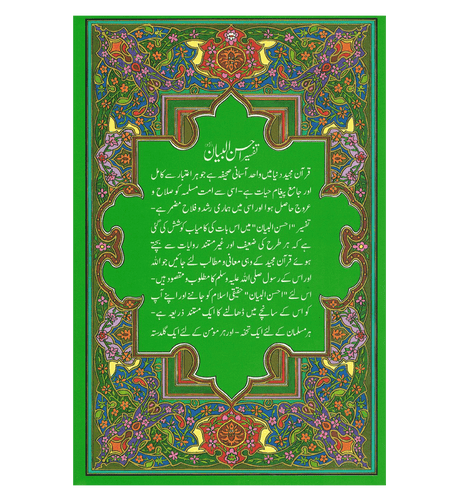 تفسیر احسن البیان
قرآن مجید دنیا میں واحد آسمانی صحیفہ ہے جو ہر اعتبار سے کامل
اور جامع پیغام حیات ہے۔ اسی سے امت مسلمہ کو صلاح و
عروج حاصل ہوا اور اسی میں ہماری رشد و فلاح مضمر ہے۔
تفسیر "احسن البیان" میں اس بات کی کامیاب کوشش کی گئی
ہے کہ ہر طرح کی ضعیف اور غیر مستند روایات سے بچتے
ہوئے قرآن مجید کے وہی معانی و مطالب لئے جائیں جو اللہ
اور اس کے رسول صلی اللہ علیہ وسلم کا مطلوب و مقصود ہیں۔
اس لئے "احسن البیان" حقیقی اسلام کو جاننے اور اپنے آپ
کو اس کے سانچے میں ڈھالنے کا ایک مستند ذریعہ ہے۔
ہر مسلمان کے لئے ایک تحفہ۔ اور ہر مؤمن کے لئے ایک گلدستہ